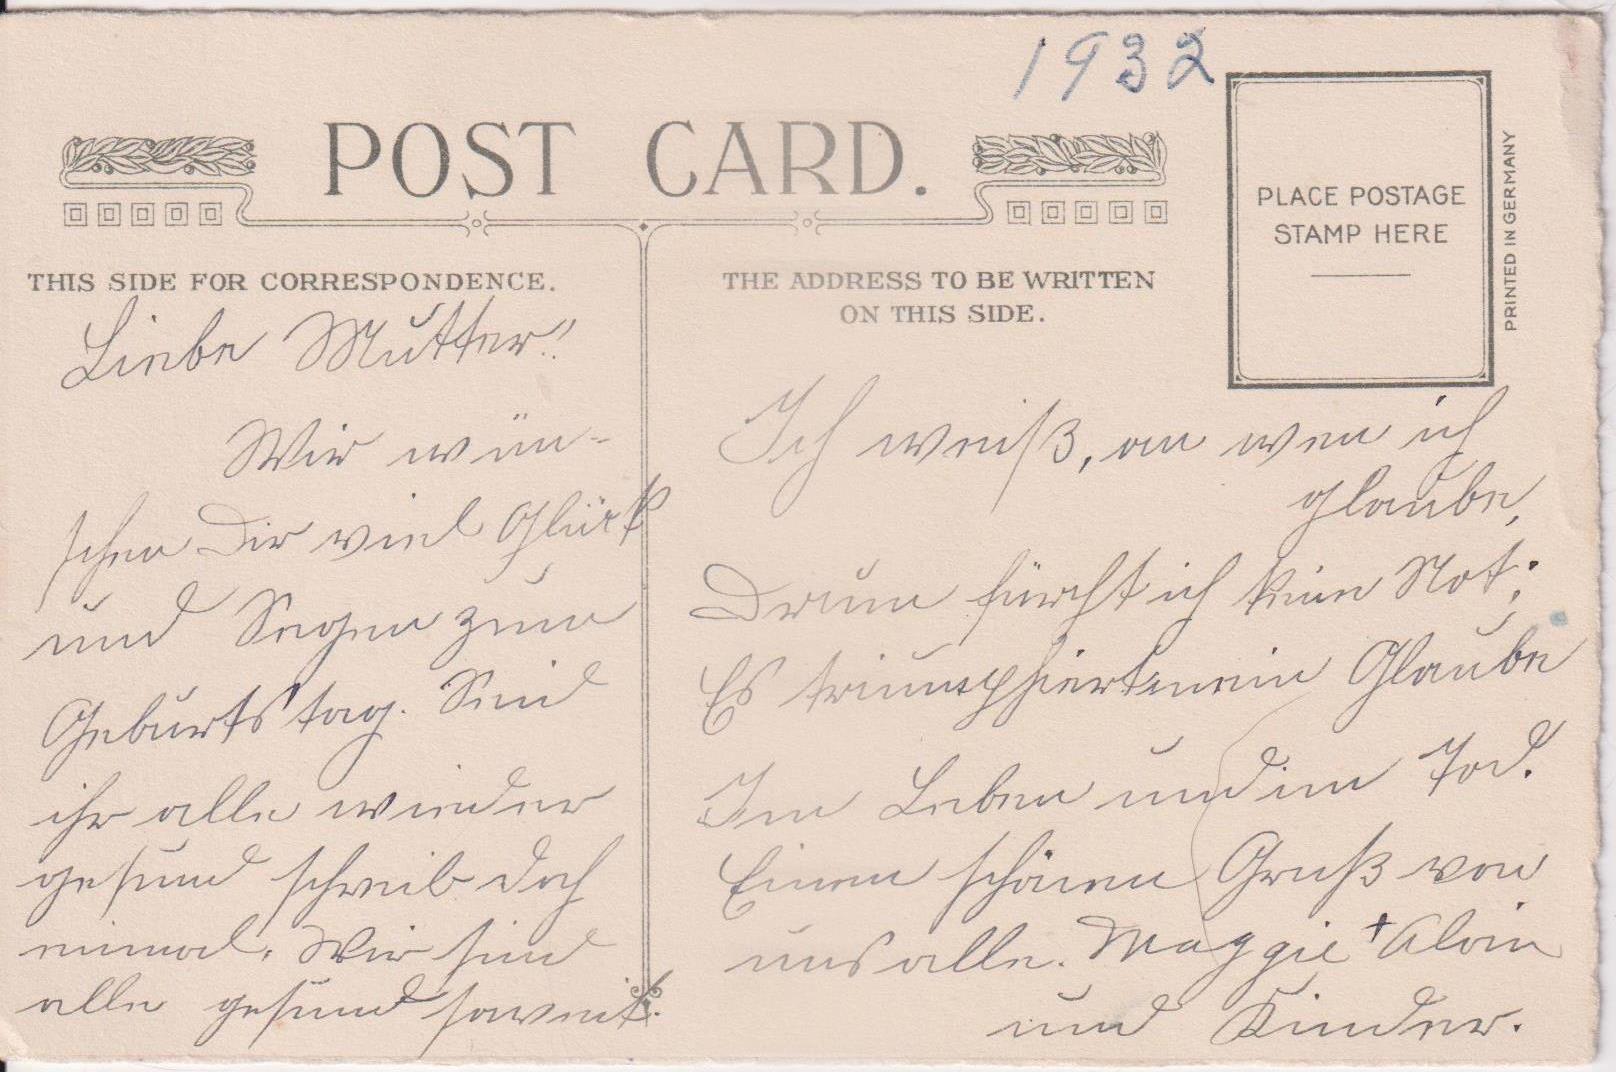 1932
POST CARD.
PLACE POSTAGE
STAMP HERE
PRINTED IN GERMANY
THIS SIDE FOR CORRESPONDENCE.
Liebe Mutter!
Wir wün-
schen Dir viel Glück
und Segen zum
Geburtstag. Seid
ihr alle wieder
gesund schreib doch
einmal. Wir sind
alle gesund soweit.
THE ADDRESS TO BE WRITTEN
ON THIS SIDE.
Ich weiß, an wen ich
glaube,
Drum fürcht ich keine Not;
Es triumphiert mein Glaube
Im Leben und im Tod.
Einen schönen Gruß von
uns alle. Maggie + Alvin
und Kinder.